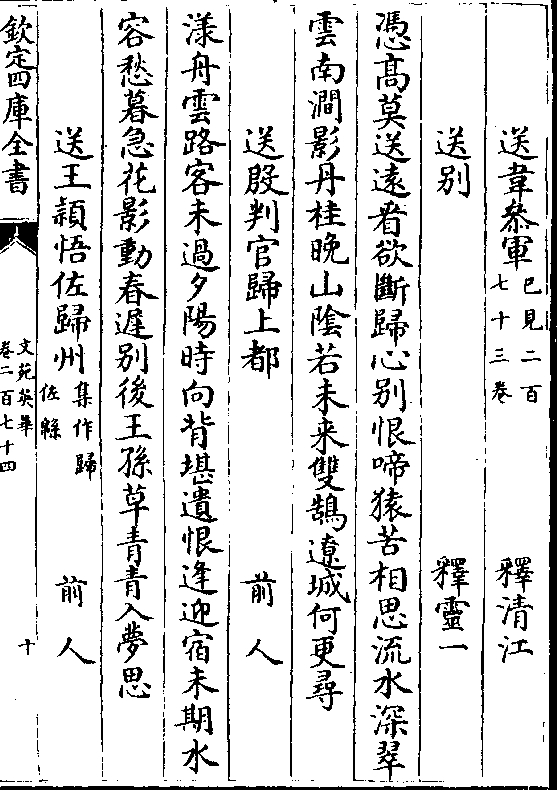 送韋叅軍 已見二百七十三卷 釋清江
送别 釋靈一
憑髙莫送逺看欲斷歸心别恨啼猿苦相思流水深翠
雲南澗影丹桂晚山隂若未来雙鵠遼城何更尋
送殷判官歸上都 前人
漾舟雲路客未過夕陽時向背堪遺恨逢迎宿未期水
容愁暮急花影動春遲别後王孫草青青入夢思
送王頴悟佐歸州 集作歸佐緜 前人
欽定四庫全書
文苑英華
卷二百七十四
十